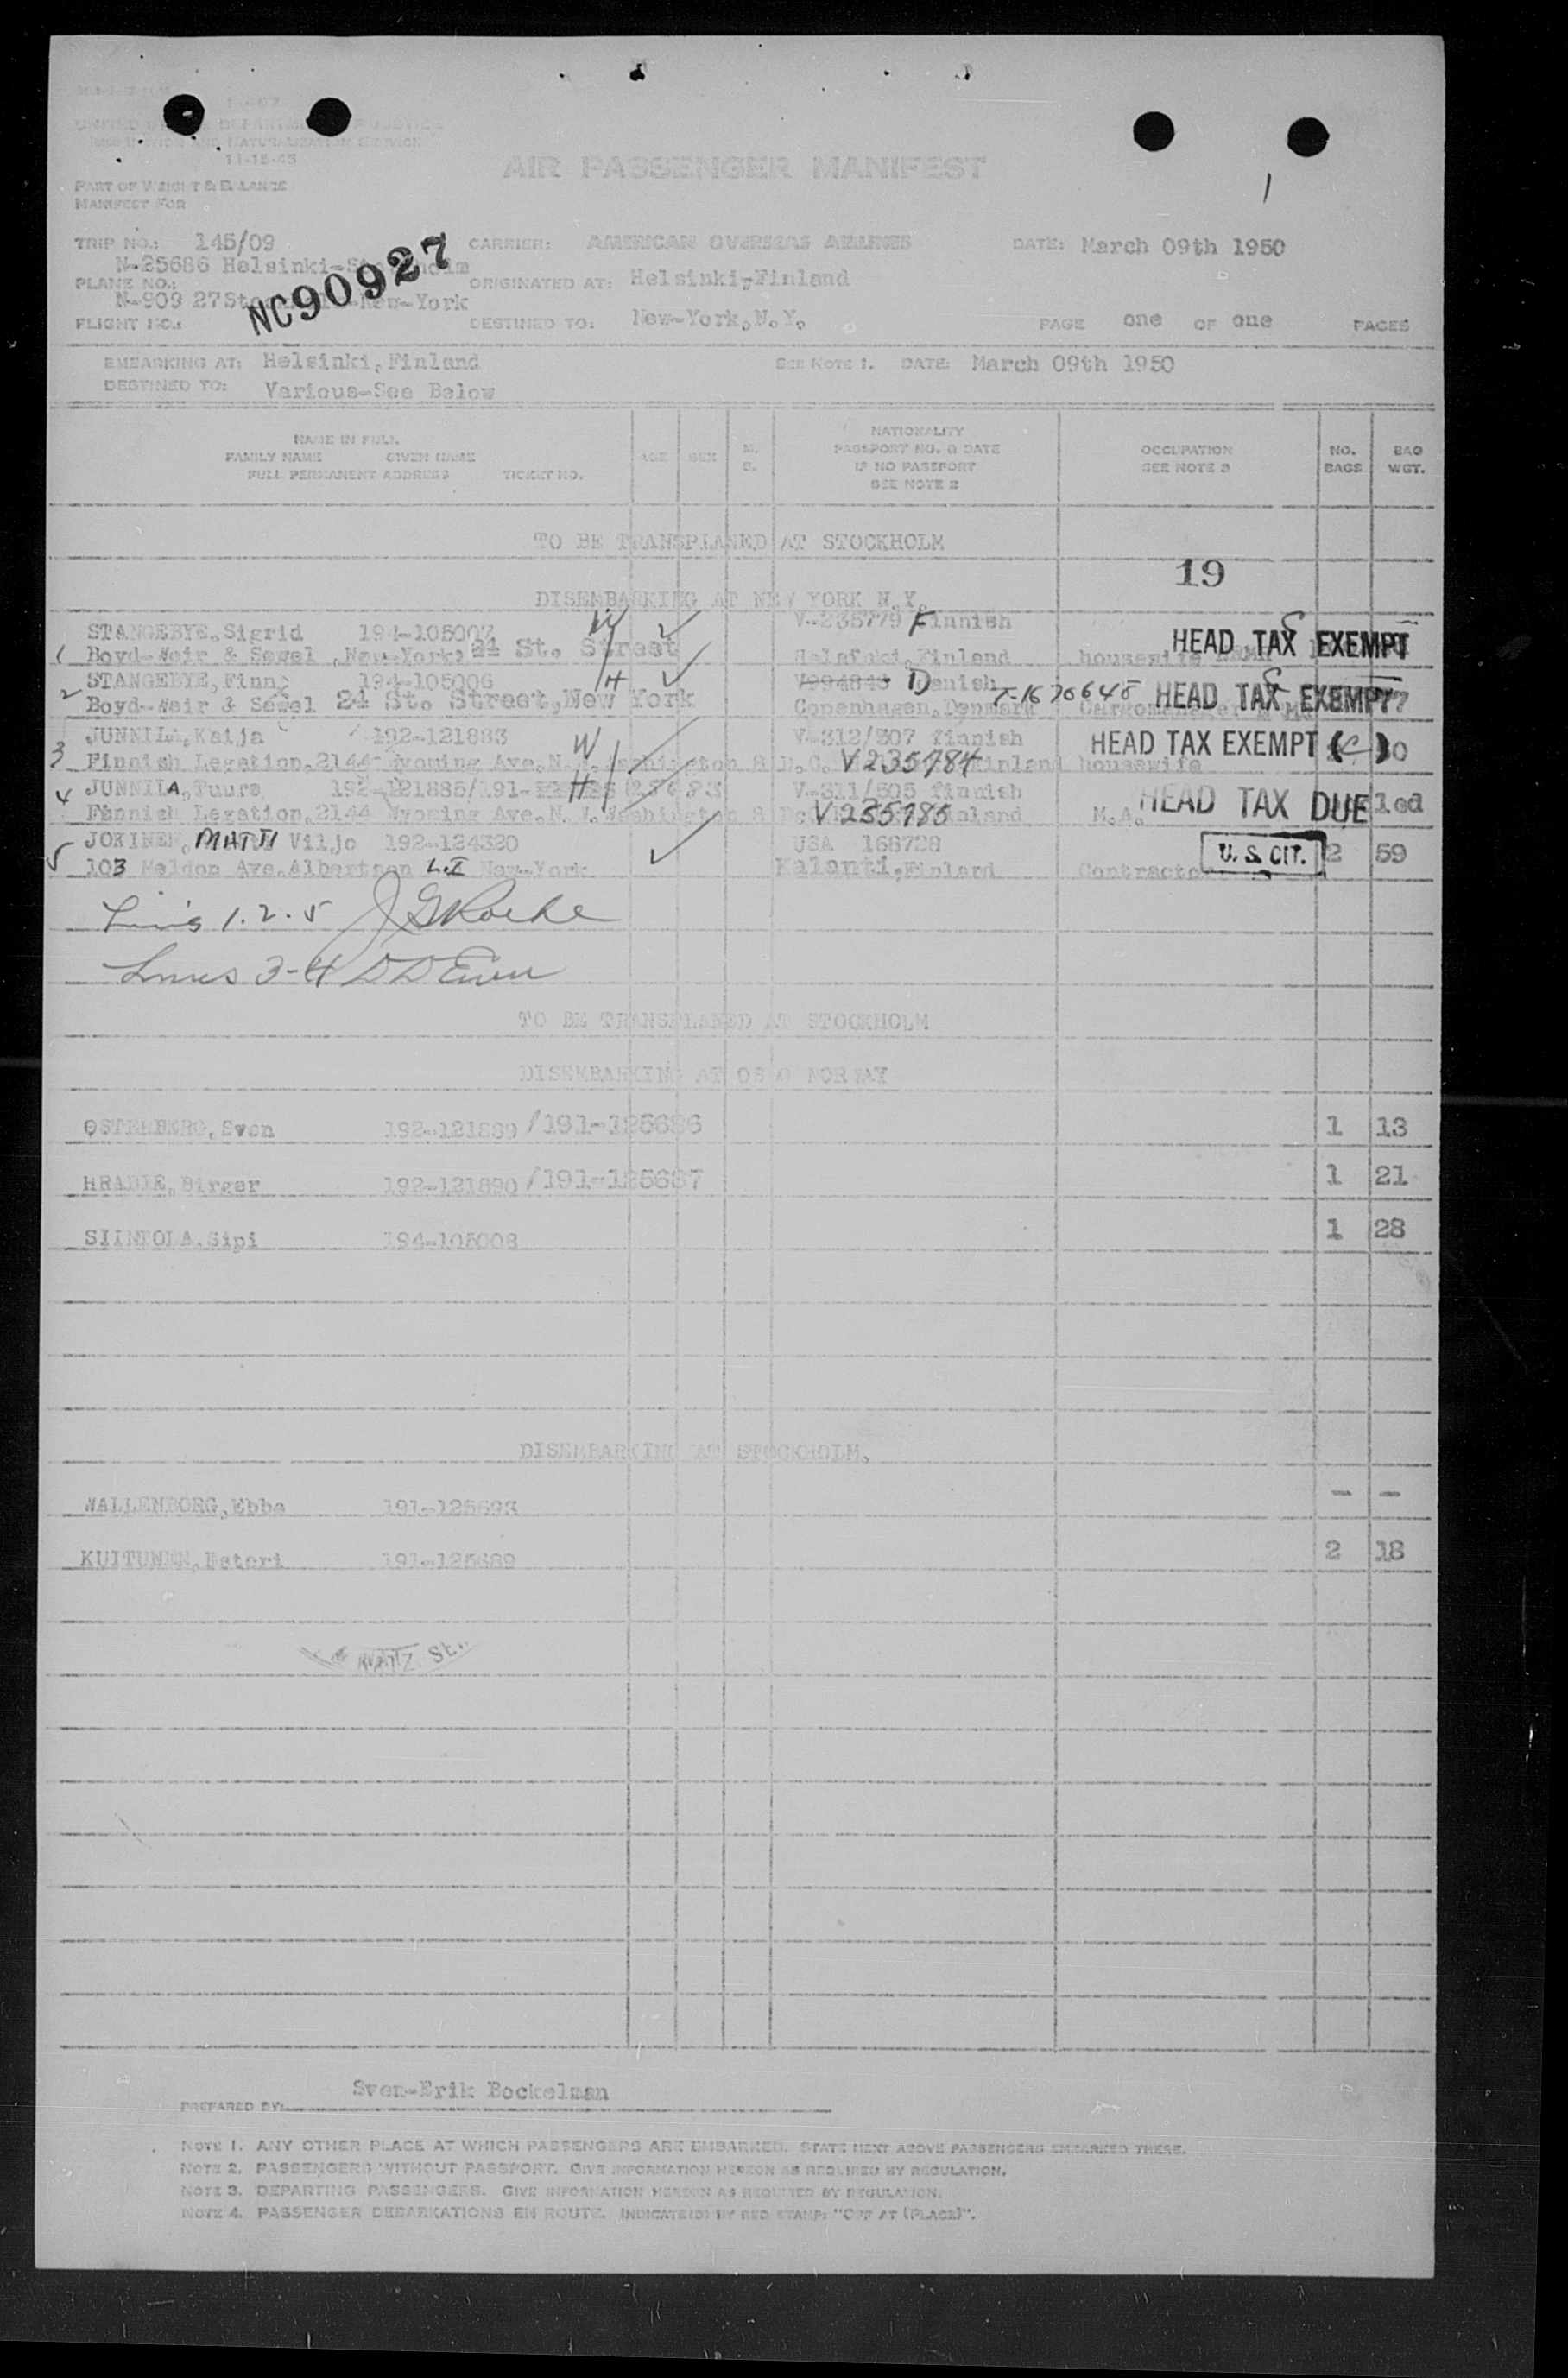 UNITED STATES DEPARTMENT OF JUSTICE
IMMIGRATION AND NATURALIZATION SERVICE
11-15-45
AIR PASSENGER MANIFEST
1
PART OF WEIGHT & BALANCE
MANIFEST FOR
TRIP NO.: 145/09 CARRIER: AMERICAN OVERSEAS AIRLINES DATE: March 09th 1950
N-25686 Helsinki-Stockholm
PLANE NO.: NC90927 ORIGINATED AT: Helsinki-Finland
N-909 27 -New-York
FLIGHT NO.: DESTINED TO: New-York,N.Y. PAGE one OF one PAGES
EMBARKING AT: Helsinki,Finland SEE NOTE 1. DATE: March 09th 1950
DESTINED TO: Various-See Below
NAME IN FULL
FAMILY NAME GIVEN NAME
FULL PERMANENT ADDRESS TICKET NO.
AGE SEX M. S.
NATIONALITY
PASSPORT NO. & DATE
IF NO PASSPORT
SEE NOTE 2
OCCUPATION
SEE NOTE 3
NO. BAGS
BAG WGT.
TO BE TRANSPLANED AT STOCKHOLM
19
DISEMBARKING AT NEW YORK N.Y.
STANGEBYE,Sigrid 194-105007 W V-235779 Finnish
1 Boyd-Weir & Sewel ,New-York, 24 St. Street Finland housewife HEAD TAX EXEMPT
STANGEBYE,Finn 194-105006 H V994843 Danish T-1670648
2 Boyd-Weir & Sewel 24 St. Street,New York Copenhagen,Denmark HEAD TAX EXEMPT 77
JUNNILA,Kaija 192-121883 W V-312/507 finnish HEAD TAX EXEMPT (C)
3 Finnish Legation,2144 Wyoming Ave.N.W.Washington 8 D.C. V235784 Finland housewife
4 JUNNILA,Tuure 192-121885/191- H V-311/505 finnish HEAD TAX DUE
Finnish Legation,2144 Wyoming Ave.N.W.Washington 8 V235785 M.A.
JOKINEN, MATTI Viljo 192-124320 USA 168728 U. S. CIT. 2 59
5 103 Meldon Ave.Albertson L.I New-York Kalanti,Finland Contractor
Lines 1.2.5 J G Roche
Lines 3-4 D D
TO BE TRANSPLANED AT STOCKHOLM
DISEMBARKING AT OSLO NORWAY
OSTERBERG,Sven 192-121889 /191-125686 1 13
HRABIE,Birger 192-121890 /191-125687 1 21
SIINTOLA,Sipi 194-105008 1 28
DISEMBARKING AT STOCKHOLM.
WALLENBORG,Ebba 191-125693 - -
KUITUNEN,Esteri 191-125689 2 18
PREPARED BY: Sven-Erik Bockelman
NOTE 1. ANY OTHER PLACE AT WHICH PASSENGERS ARE EMBARKED. STATE NEXT ABOVE PASSENGERS EMBARKED THERE.
NOTE 2. PASSENGERS WITHOUT PASSPORT. GIVE INFORMATION HEREON AS REQUIRED BY REGULATION.
NOTE 3. DEPARTING PASSENGERS. GIVE INFORMATION HEREON AS REQUIRED BY REGULATION.
NOTE 4. PASSENGER DEBARKATIONS EN ROUTE. INDICATE(D) BY RED STAMP: "OFF AT (PLACE)".